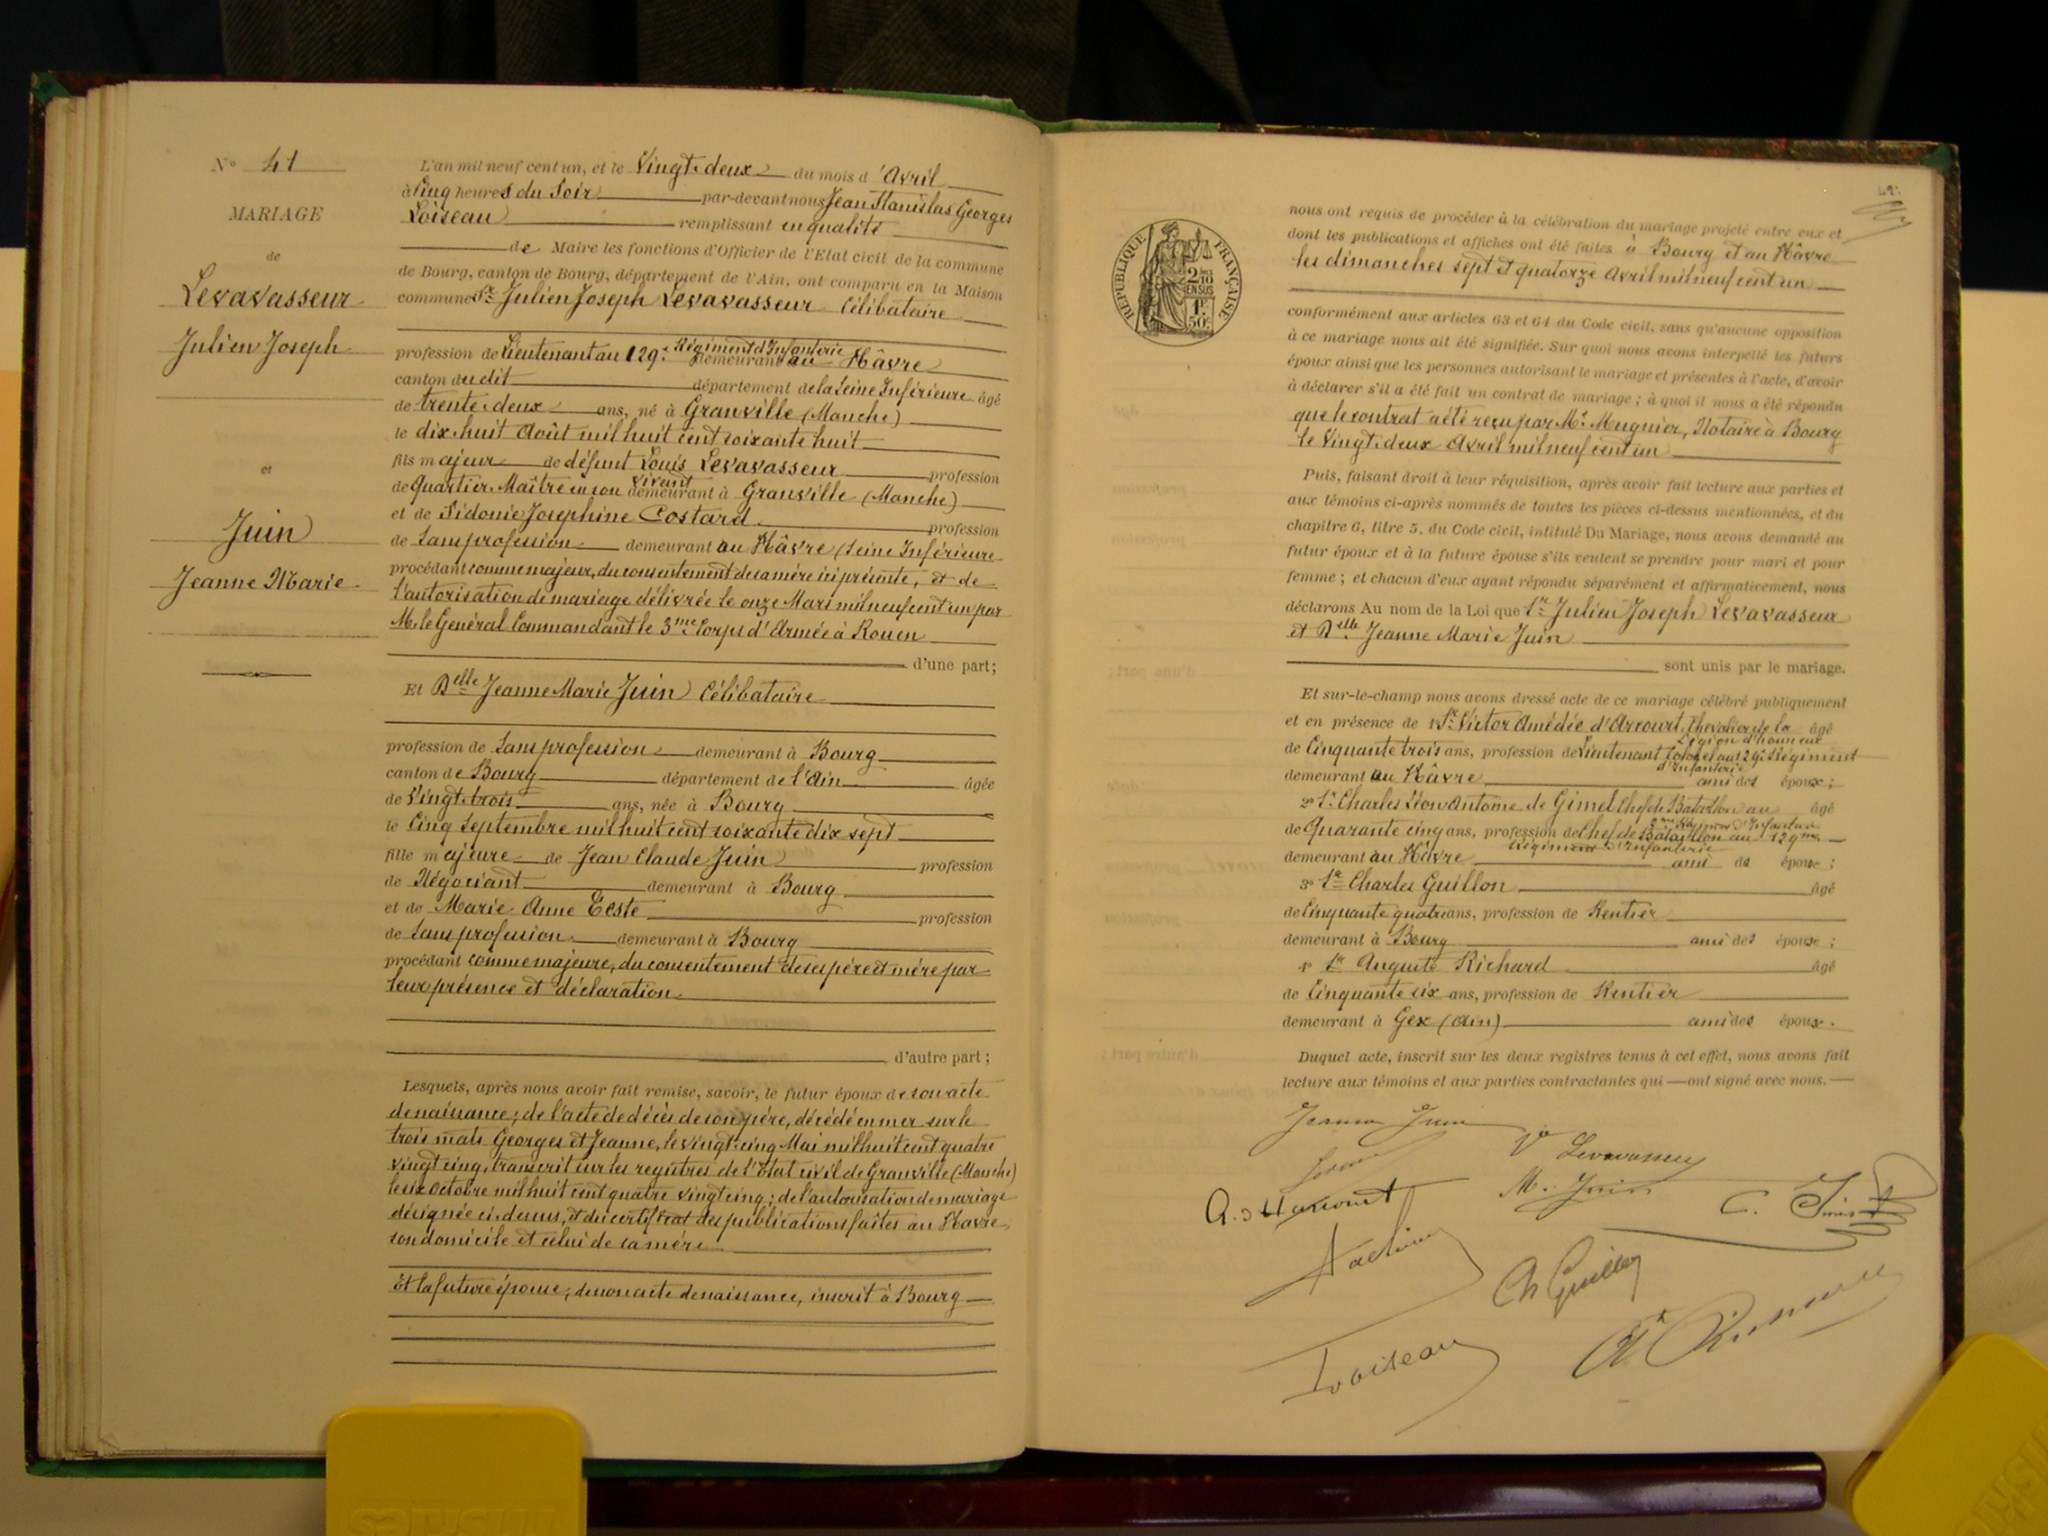 N° 41
MARIAGE
de
Levavasseur
Julien Joseph
et
Juin
Jeanne Marie
L'an mil neuf cent un, et le Vingt-deux du mois d'Avril
à Cinq heures du Soir par-devant nous Jean Stanislas Georges
Loiseau remplissant en qualité
de Maire les fonctions d'Officier de l'Etat civil de la commune
de Bourg, canton de Bourg, département de l'Ain, ont comparu en la Maison
commune Sr Julien Joseph Levavasseur Célibataire
profession de Lieutenant au 129e Régiment d'Infanterie demeurant au Hâvre
canton du dit département de la Seine Inférieure âgé
de trente-deux ans, né à Granville (Manche)
le dix-huit Août mil huit cent soixante huit
fils majeur de défunt Louis Levavasseur profession
de Quartier-Maître en son vivant demeurant à Granville (Manche)
et de Sidonie Josephine Costard profession
de Sans profession demeurant au Hâvre (Seine Inférieure
procédant comme majeur, du consentement de sa mère ici présente, et de
l'autorisation de mariage délivrée le onze Mars mil neuf cent un par
M. le Général Commandant le 3me Corps d'Armée à Rouen
d'une part;
Et Delle Jeanne Marie Juin Célibataire
profession de Sans profession demeurant à Bourg
canton de Bourg département de l'Ain âgée
de Vingt-trois ans, née à Bourg
le Cinq Septembre mil huit cent soixante dix sept
fille majeure de Jean Claude Juin profession
de Négociant demeurant à Bourg
et de Marie Anne Teste profession
de Sans profession demeurant à Bourg
procédant comme majeure, du consentement de ses père et mère par
leur présence et déclaration.
d'autre part;
Lesquels, après nous avoir fait remise, savoir, le futur époux de son acte
de naissance; de l'acte de décès de son père, décédé en mer sur le
trois mats Georges et Jeanne, le vingt-cinq Mai mil huit cent quatre
vingt cinq, transcrit sur les registres de l'Etat civil de Granville (Manche)
le six Octobre mil huit cent quatre vingt cinq; de l'autorisation de mariage
désignée ci-dessus, et du certificat des publications faites au Havre,
son domicile et celui de sa mère
Et la future épouse, de son acte de naissance, inscrit à Bourg
RÉPUBLIQUE FRANÇAISE
2/10
EN SUS
1F
50c
nous ont requis de procéder à la célébration du mariage projeté entre eux et
dont les publications et affiches ont été faites à Bourg et au Hâvre
les dimanches sept et quatorze Avril mil neuf cent un
conformément aux articles 63 et 64 du Code civil, sans qu'aucune opposition
à ce mariage nous ait été signifiée. Sur quoi nous avons interpellé les futurs
époux ainsi que les personnes autorisant le mariage et présentes à l'acte, d'avoir
à déclarer s'il a été fait un contrat de mariage; à quoi il nous a été répondu
que le contrat a été reçu par Me Mugnier, Notaire à Bourg
le Vingt-deux Avril mil neuf cent un
Puis, faisant droit à leur réquisition, après avoir fait lecture aux parties et
aux témoins ci-après nommés de toutes les pièces ci-dessus mentionnées, et du
chapitre 6, titre 5, du Code civil, intitulé Du Mariage, nous avons demandé au
futur époux et à la future épouse s'ils veulent se prendre pour mari et pour
femme; et chacun d'eux ayant répondu séparément et affirmativement, nous
déclarons Au nom de la Loi que Sr Julien Joseph Levavasseur
et Delle Jeanne Marie Juin
sont unis par le mariage.
Et sur-le-champ nous avons dressé acte de ce mariage célébré publiquement
et en présence de 1° Sr Victor Amédée d'Arcourt, Chevalier de la âgé
Légion d'honneur
de Cinquante trois ans, profession de Lieutenant Colonel au 129e Régiment
d'Infanterie
demeurant au Hâvre ami des époux;
2° Sr Charles Léon Antoine de Gimel Chef de Bataillon au âgé
de Quarante cinq ans, profession de Chef de Bataillon au 129me
Régiment d'Infanterie
demeurant au Hâvre ami des époux;
3° Sr Charles Guillon âgé
de Cinquante quatre ans, profession de Rentier
demeurant à Bourg ami des époux;
4° Sr Auguste Richard âgé
de Cinquante six ans, profession de Rentier
demeurant à Gex (Ain) ami des époux.
Duquel acte, inscrit sur les deux registres tenus à cet effet, nous avons fait
lecture aux témoins et aux parties contractantes qui ont signé avec nous.
Jeanne Juin
Ve Levavasseur
M. Juin
C. Juin
Ch Guillon
Loiseau